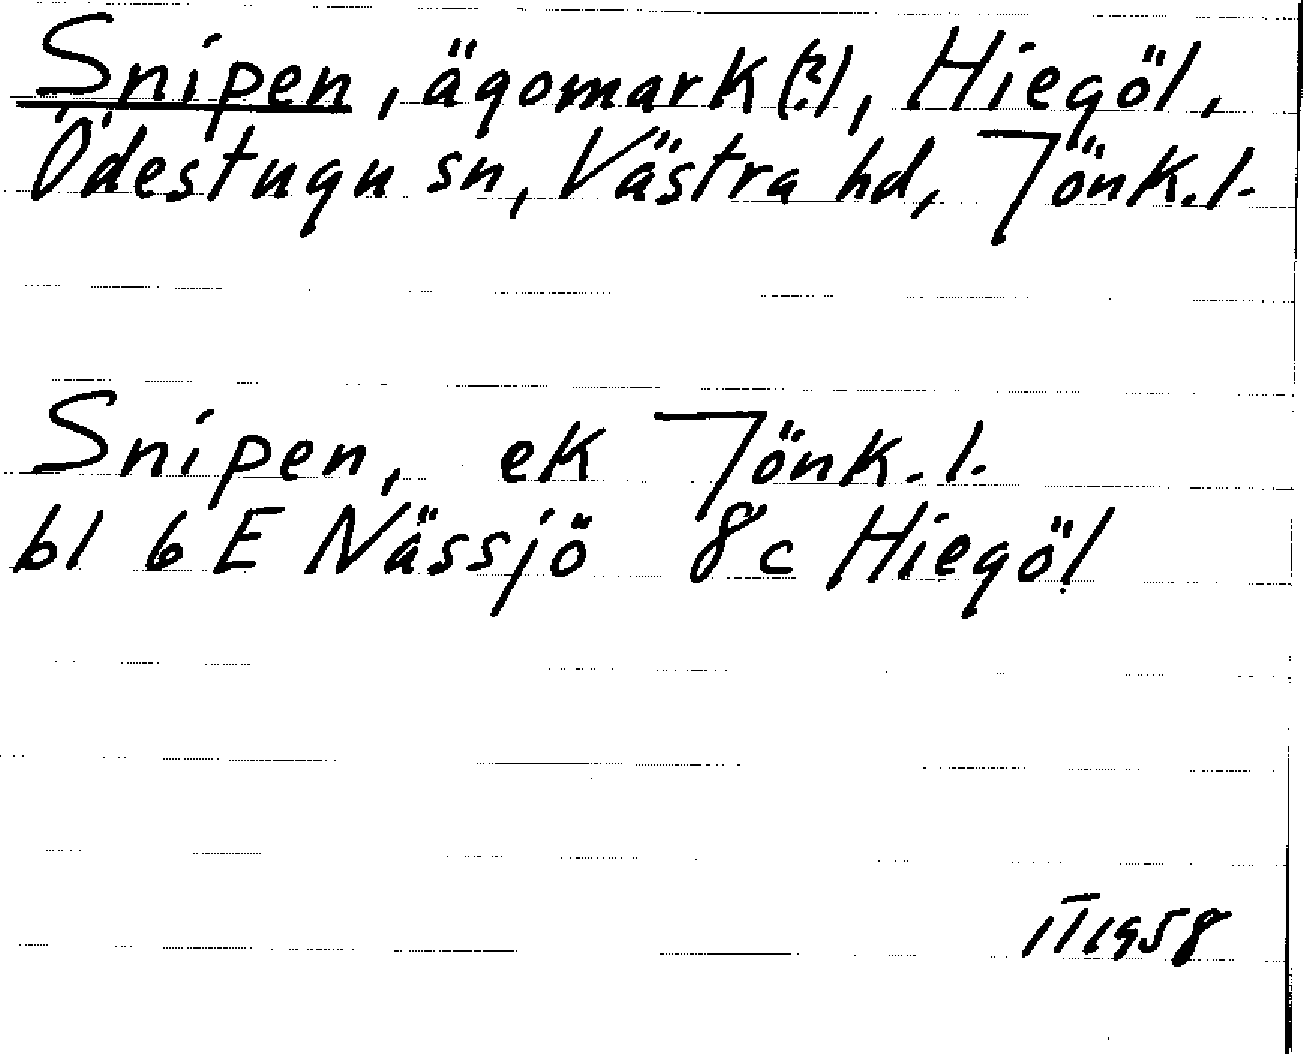 Snipen, ägomark (?), Hiegöl,
Ödestugu sn, Västra hd, Jönk. l.
Snipen, ek Jönk. l.
bl 6 E Nässjö 8 c Hiegöl
IT 1958